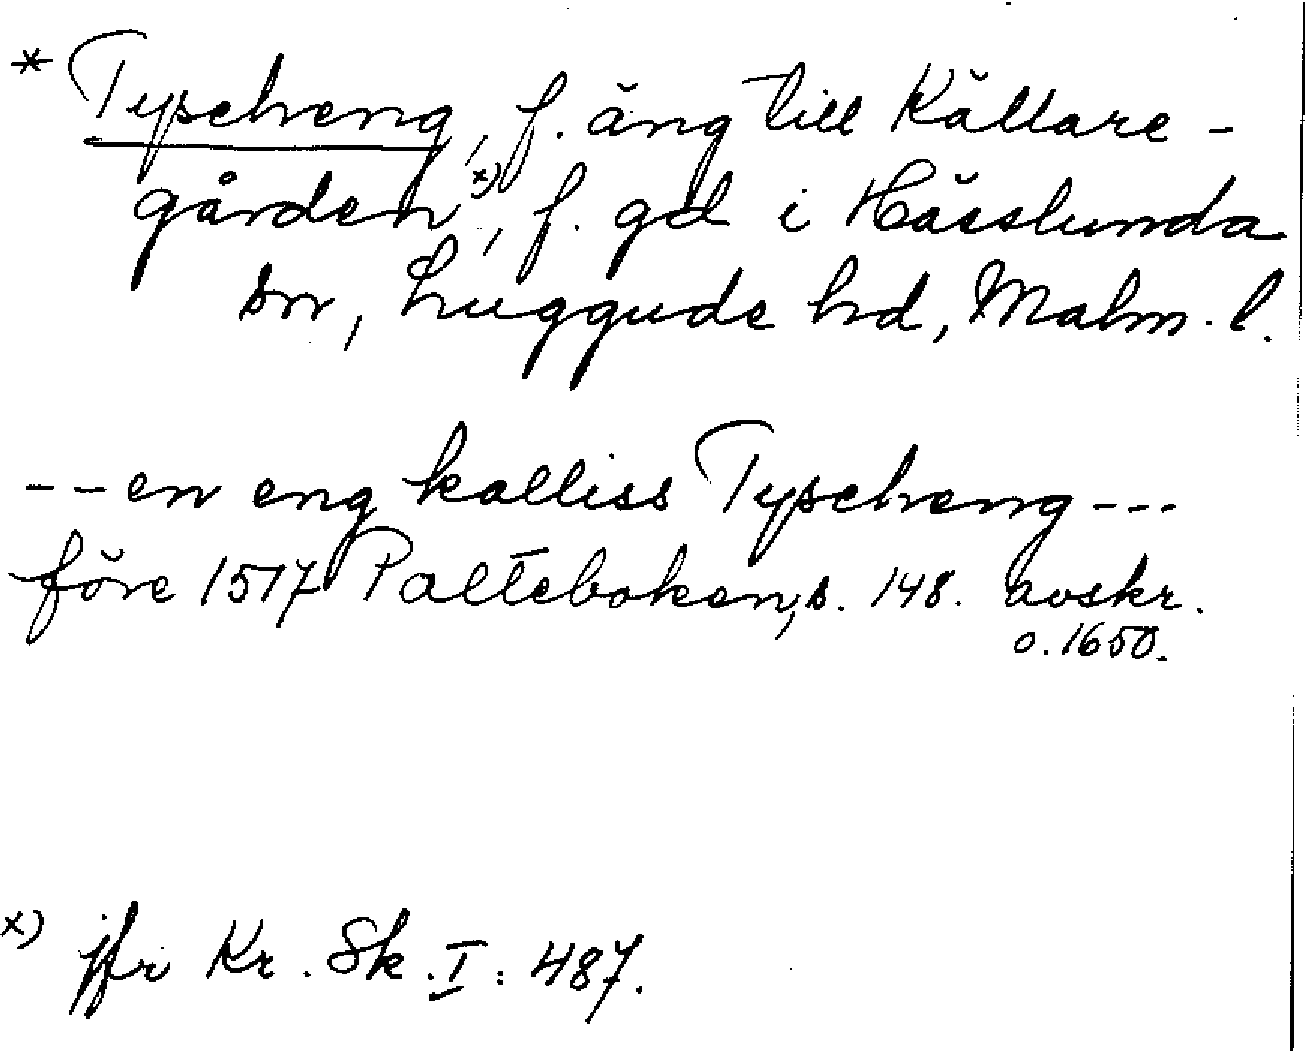 * Typscheng, f. äng till Källare-
gården x), f. gd i Hässlunda
sn, Luggude hd, Malm. l.
--en eng kalliss Typscheng---
före 1517 Palteboken, s. 148. avskr.
o. 1650.
x) jfr Kr. Sk. I: 487.